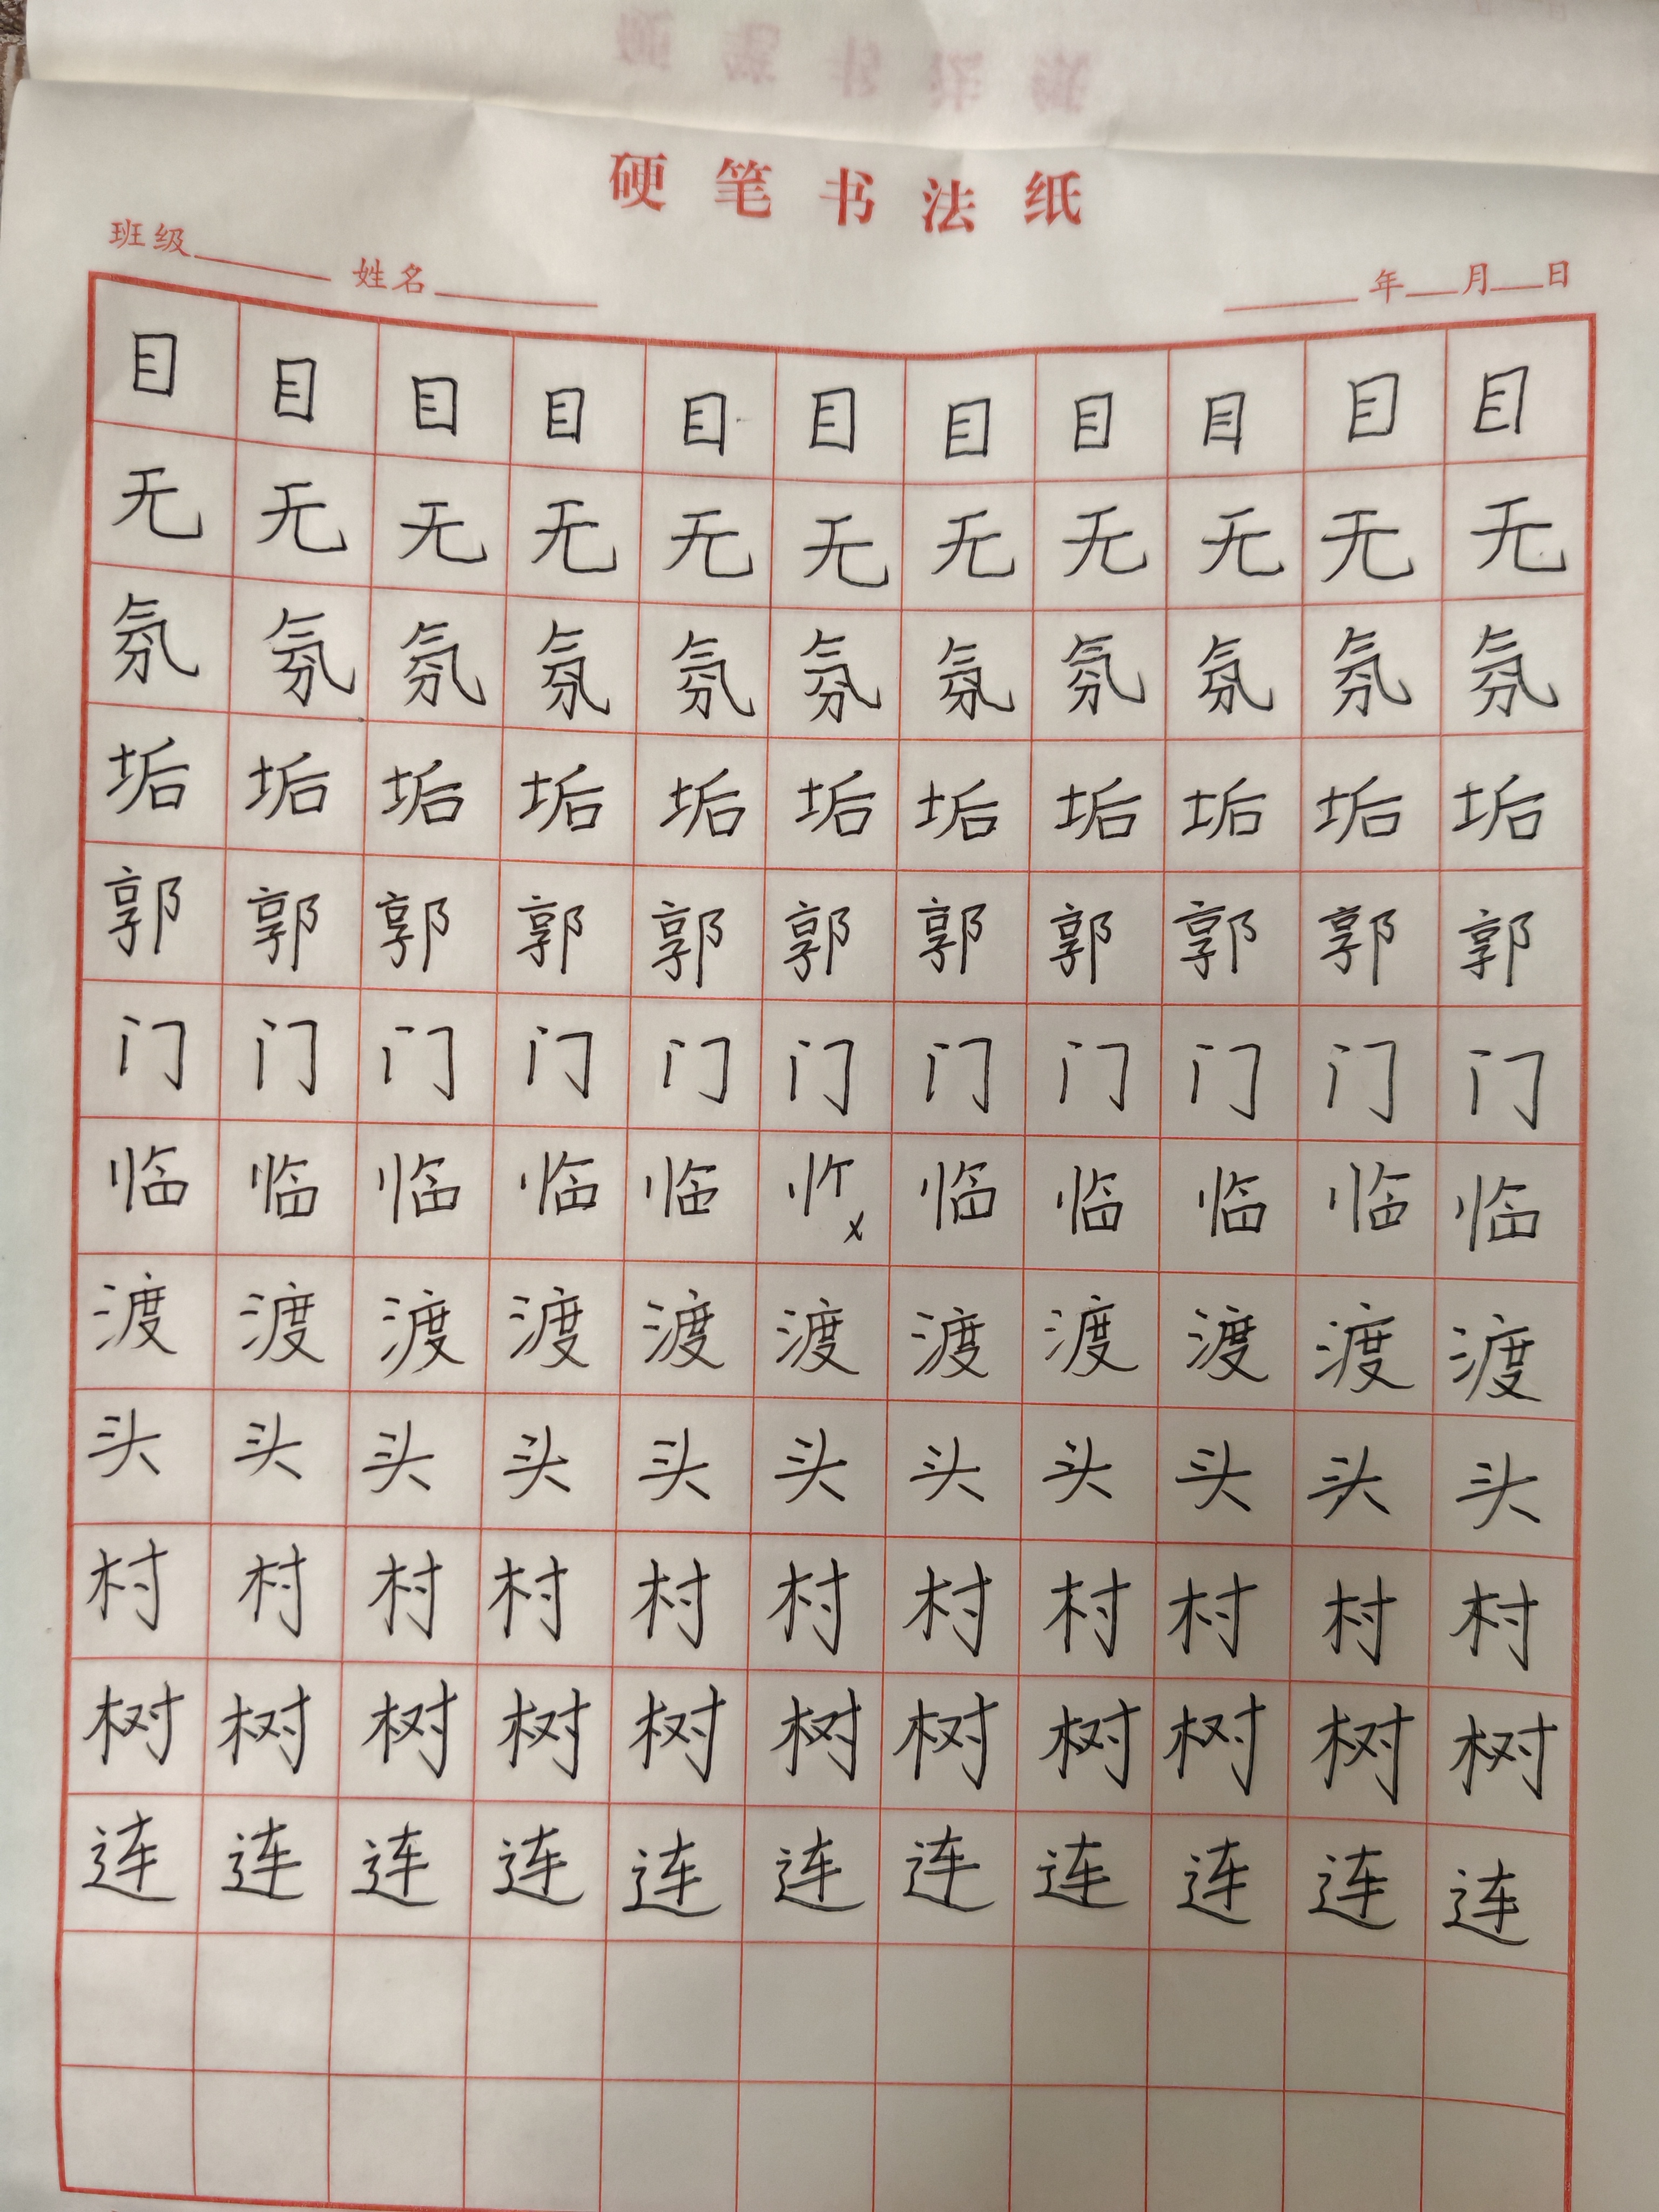 硬笔书法纸
班级 姓名 年 月 日
目目目目目目目目目目目
无无无无无无无无无无无
氛氛氛氛氛氛氛氛氛氛氛
垢垢垢垢垢垢垢垢垢垢垢
郭郭郭郭郭郭郭郭郭郭郭
门门门门门门门门门门门
临临临临临 x 临临临临临
渡渡渡渡渡渡渡渡渡渡渡
头头头头头头头头头头头
村村村村村村村村村村村
树树树树树树树树树树树
连连连连连连连连连连连